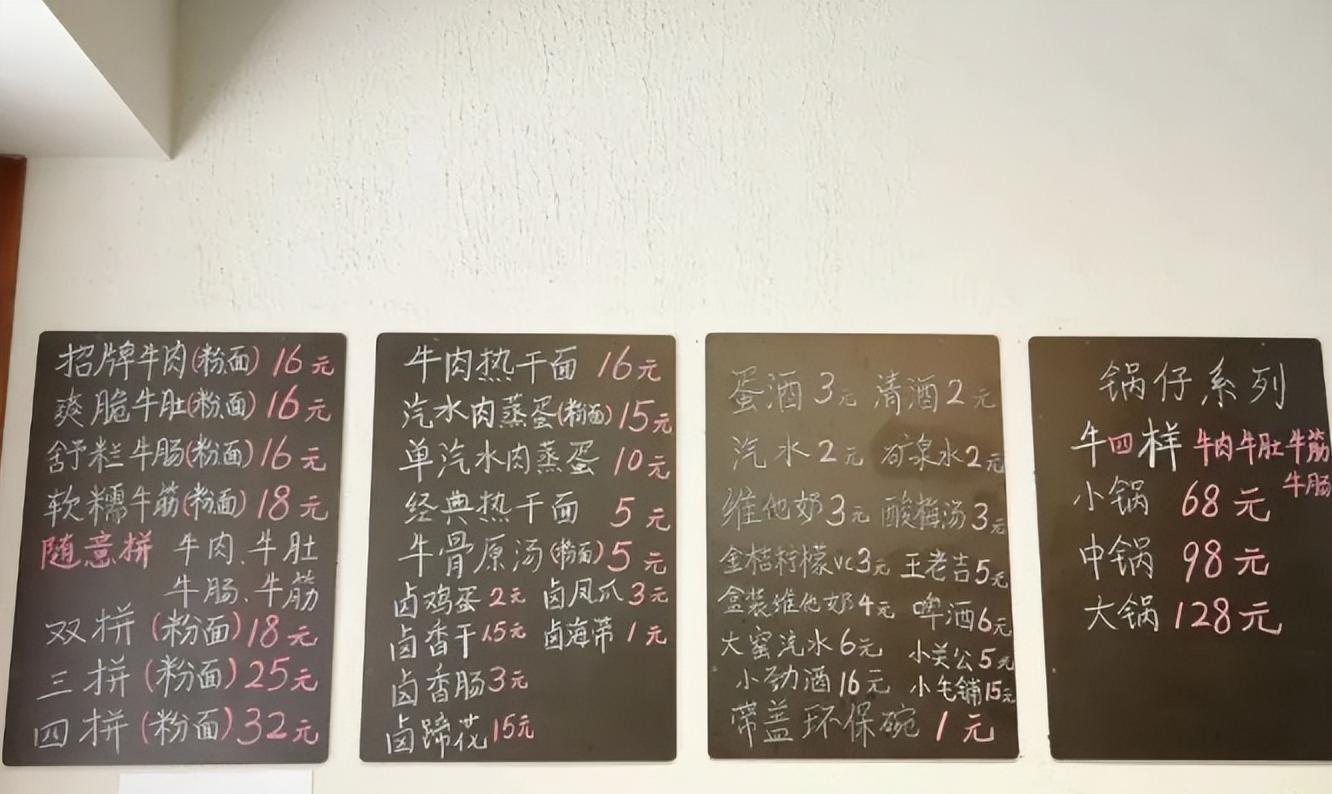 招牌牛肉(粉面) 16元
爽脆牛肚(粉面) 16元
舒粏牛肠(粉面) 16元
软糯牛筋(粉面) 18元
随意拼 牛肉、牛肚
牛肠、牛筋
双拼(粉面) 18元
三拼(粉面) 25元
四拼(粉面) 32元
牛肉热干面 16元
汽水肉蒸蛋(粉面) 15元
单汽水肉蒸蛋 10元
经典热干面 5元
牛骨原汤(粉面) 5元
卤鸡蛋 2元 卤凤爪 3元
卤香干 1.5元 卤海带 1元
卤香肠 3元
卤蹄花 15元
蛋酒 3元 清酒 2元
汽水 2元 矿泉水 2元
维他奶 3元 酸梅汤 3元
金桔柠檬VC 3元 王老吉 5元
盒装维他奶 4元 啤酒 6元
大窑汽水 6元 小关公 5元
小劲酒 16元 小毛铺 15元
带盖环保碗 1元
锅仔系列
牛四样 牛肉牛肚牛筋
牛肠
小锅 68元
中锅 98元
大锅 128元